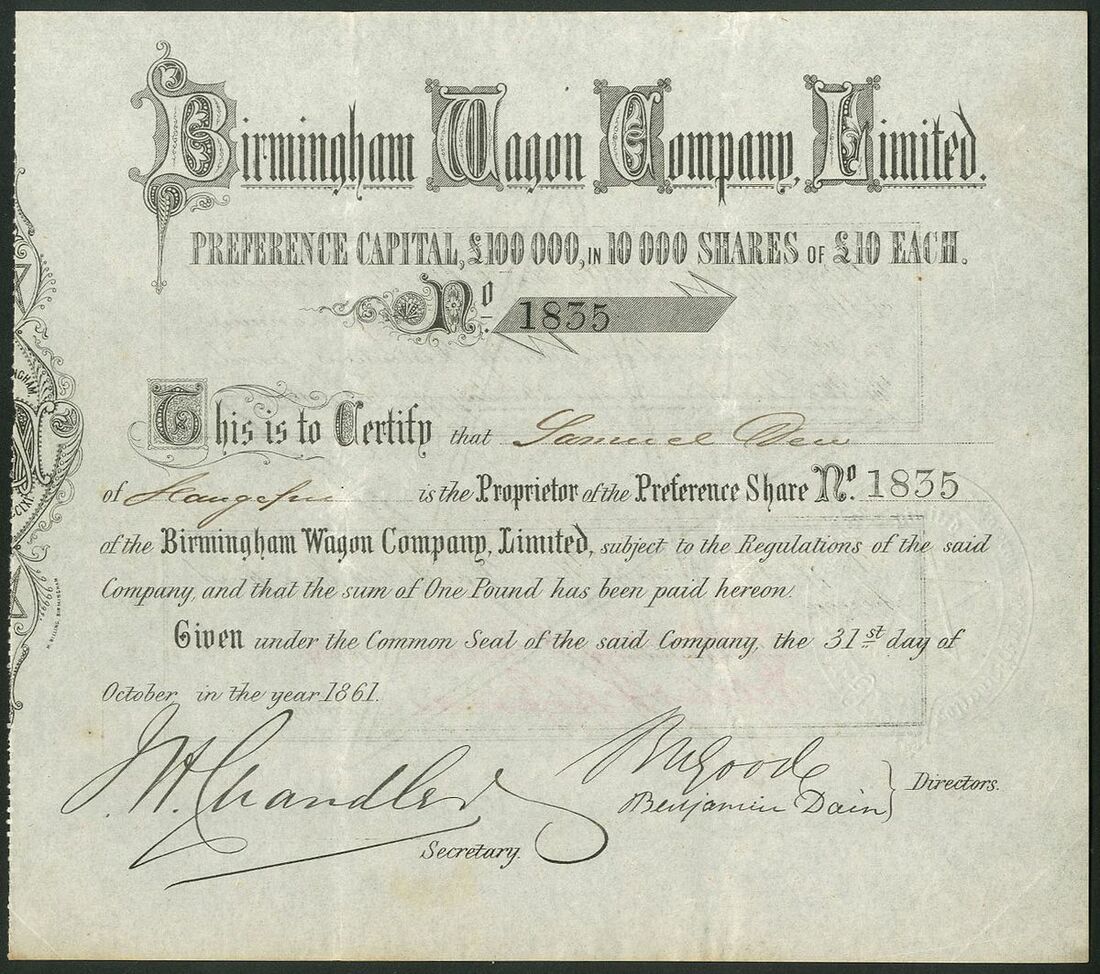 Birmingham Wagon Company, Limited.
PREFERENCE CAPITAL, £100 000, IN 10 000 SHARES OF £10 EACH.
No. 1835
This is to Certify that Samuel Dew
of Llangefni is the Proprietor of the Preference Share No. 1835
of the Birmingham Wagon Company, Limited, subject to the Regulations of the said
Company, and that the sum of One Pound has been paid hereon.
Given under the Common Seal of the said Company, the 31st day of
October in the year 1861.
Chandler
Goode
Benjamin Dain
Directors.
Secretary.
BIRMINGHAM